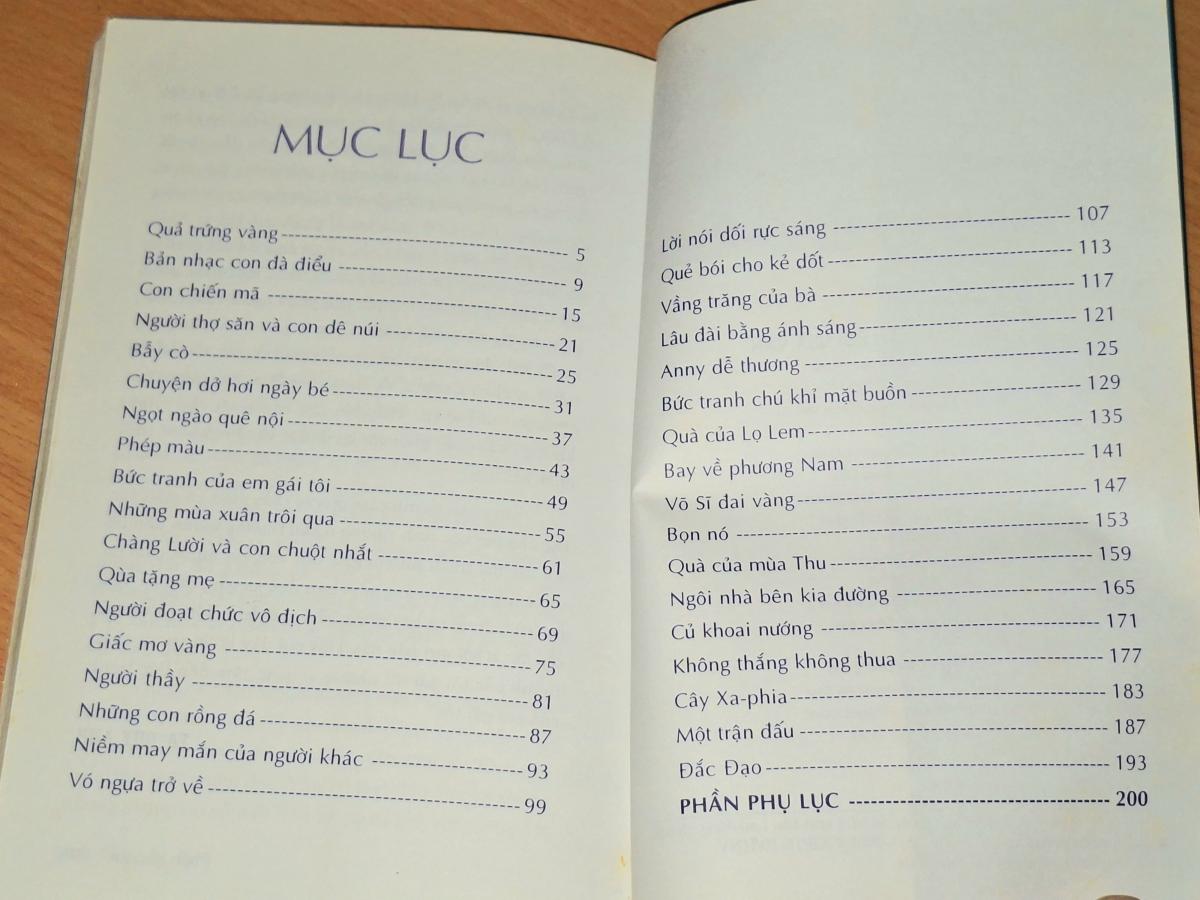 MỤC LỤC
Quả trứng vàng 5
Bản nhạc con đà điểu 9
Con chiến mã 15
Người thợ săn và con dê núi 21
Bẫy cò 25
Chuyện dở hơi ngày bé 31
Ngọt ngào quê nội 37
Phép màu 43
Bức tranh của em gái tôi 49
Những mùa xuân trôi qua 55
Chàng Lười và con chuột nhắt 61
Qùa tặng mẹ 65
Người đoạt chức vô địch 69
Giấc mơ vàng 75
Người thầy 81
Những con rồng đá 87
Niềm may mắn của người khác 93
Vó ngựa trở về 99
Lời nói dối rực sáng 107
Quẻ bói cho kẻ dốt 113
Vầng trăng của bà 117
Lâu đài bằng ánh sáng 121
Anny dễ thương 125
Bức tranh chú khỉ mặt buồn 129
Quà của Lọ Lem 135
Bay về phương Nam 141
Võ Sĩ đai vàng 147
Bọn nó 153
Quà của mùa Thu 159
Ngôi nhà bên kia đường 165
Củ khoai nướng 171
Không thắng không thua 177
Cây Xa-phia 183
Một trận đấu 187
Đắc Đạo 193
PHẦN PHỤ LỤC 200